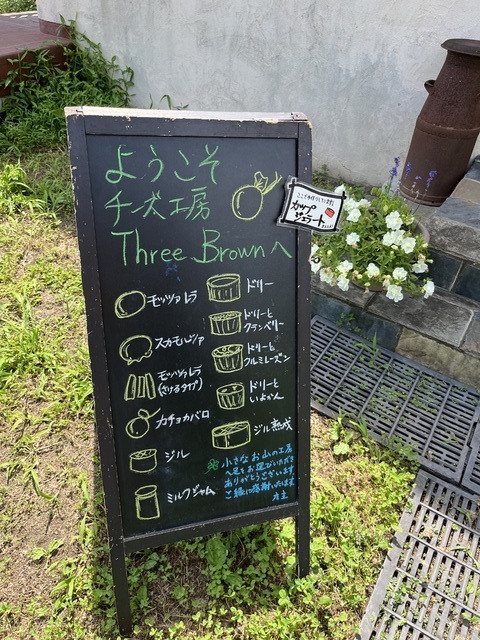 ようこそ
チーズ工房
Three Brownへ
カップ
ジェラート
モッツァレラ
スカモルツァ
モッツァレラ
(さけるタイプ)
カチョカバロ
ジル
ミルクジャム
ドリー
ドリーと
クランベリー
ドリーと
クルミレーズン
ドリーと
いよかん
ジル熟成
小さなお山の工房
へ足をお運びいただき
ありがとうございます
ご縁に感謝いたします
店主